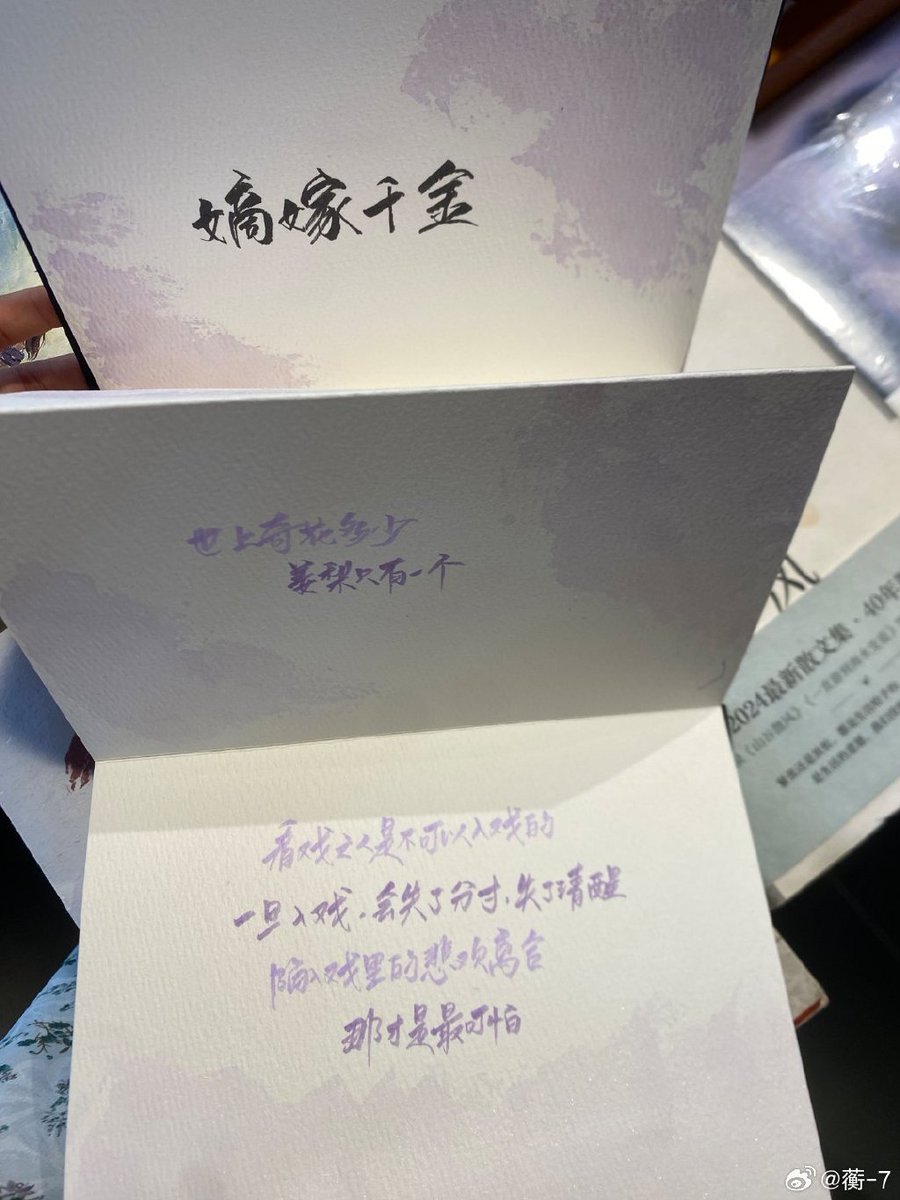 嫡嫁千金
世上奇花多少
姜梨只有一个
看戏之人是不可以入戏的
一旦入戏，会失了分寸，失了清醒
陷入戏里的悲欢离合
那才是最可怕
2024最新散文集·40年
@蘅-7